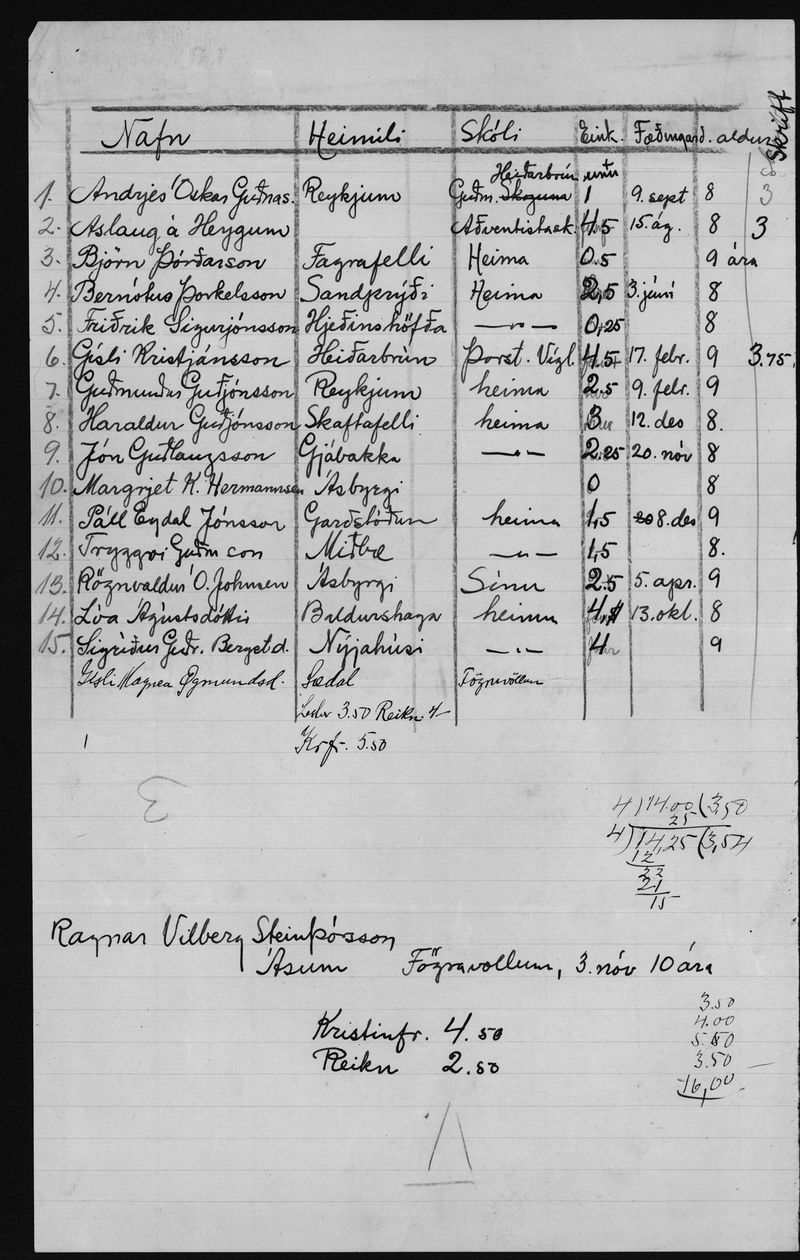 Skrift
Nafn Heimili Skóli Eink. Fæðingard. aldur
Heiðarbrún
1. Andrjes Óskar Guðnas. Reykjum Guðm. 1 9. sept 8 3
2. Aslaug á Heygum Aðventistask. 4,5 15. ág. 8 3
3. Björn Þórðarson Fagrafelli Heima 0.5 9 ára
4. Bernótus Þorkelsson Sandprýði Heima 2,5 3. júní 8
5. Friðrik Sigurjónsson Hjeðinshöfða —〃— 0,25 8
6. Gísli Kristjánsson Heiðarbrún Þorst. Vigl. 4.5 17. febr. 9 3.75
7. Guðmundur Guðjónsson Reykjum heima 2.5 9. febr. 9
8. Haraldur Guðjónsson Skaftafelli heima 3 12. des 8.
9. Jón Guðlaugsson Gjábakka —〃— 2.25 20. nóv 8
10. Margrjet K. Hermannsen Ásbyrgi 0 8
11. Páll Eydal Jónsson Garðstöðum heima 1,5 8. des 9
12. Tryggvi Guðm son Miðbæ —〃— 1,5 8.
13. Rögnvaldur Ó. Johnsen Ásbyrgi Sínu 2.5 5. apr. 9
14. Lóa Ágústsdóttir Baldurshaga heima 4, 13. okt. 8
15. Sigríður Guðr. Bergstd. Nýjahúsi —〃— 4 9
Magnea Ögmundsd. Sædal Fögruvöllum
Lestur 3.50 Reikn. 4-
Kr.fr. 5.50
3
4)14.00(3,50
25
4)14,25(3,54
12
22
21
15
Ragnar Vilberg Steinþórsson
Ásum Fögruvöllum, 3. nóv 10 ára
3.50
4.00
Kristinfr. 4.50 5.50
Reikn 2.50 3.50
16,00